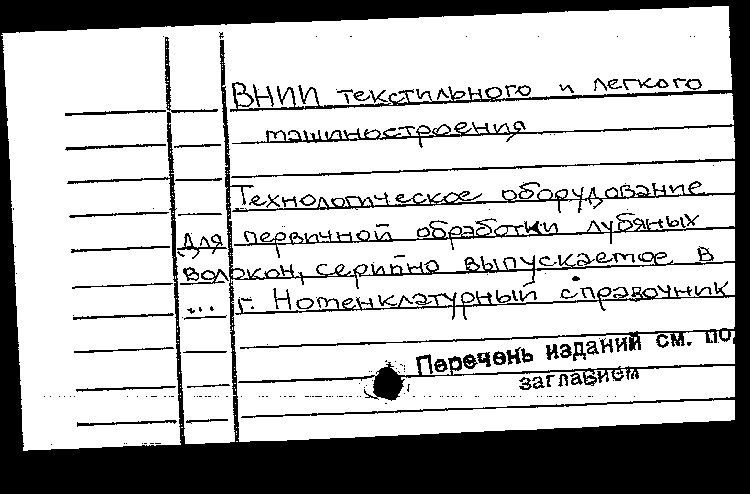 ВНИИ текстильного и легкого
машиностроения
Технологическое оборудование
для первичной обработки лубяных
волокон, серийно выпускаемое в
... г. Номенклатурный справочник
Перечень изданий см. по
заглавием